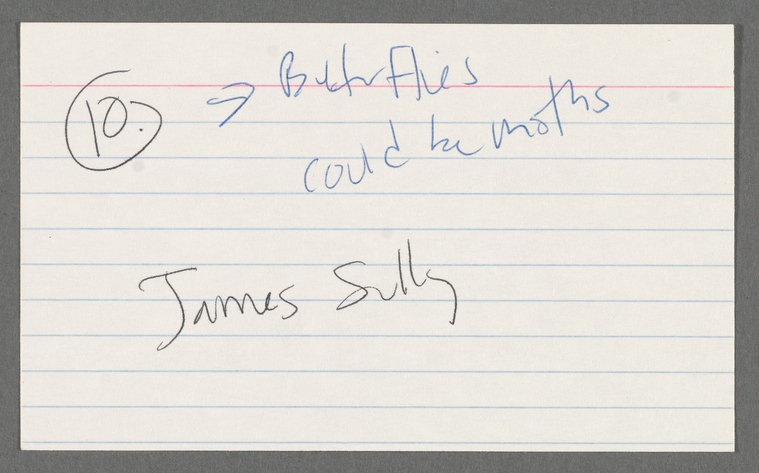 10. → Butterflies
could be moths
James Sully